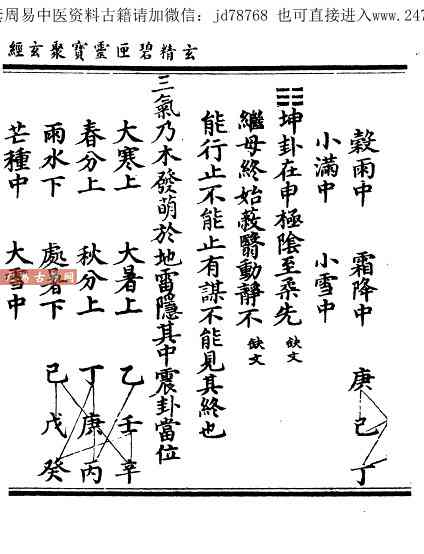 周易中医资料古籍请加微信：jd78768 也可直接进入www.247
玄精碧匣靈寶聚玄經
穀雨中 霜降中 庚己丁
小滿中 小雪中
坤卦在申極陰至柔先缺文
繼母終始蔽翳動靜不缺文
能行止不能止有謀不能見其終也
三氣乃木發萌於地雷隱其中震卦當位
大寒上 大暑上 乙壬辛
春分上 秋分上 丁庚丙
雨水下 處暑下 己戊癸
芒種中 大雪中